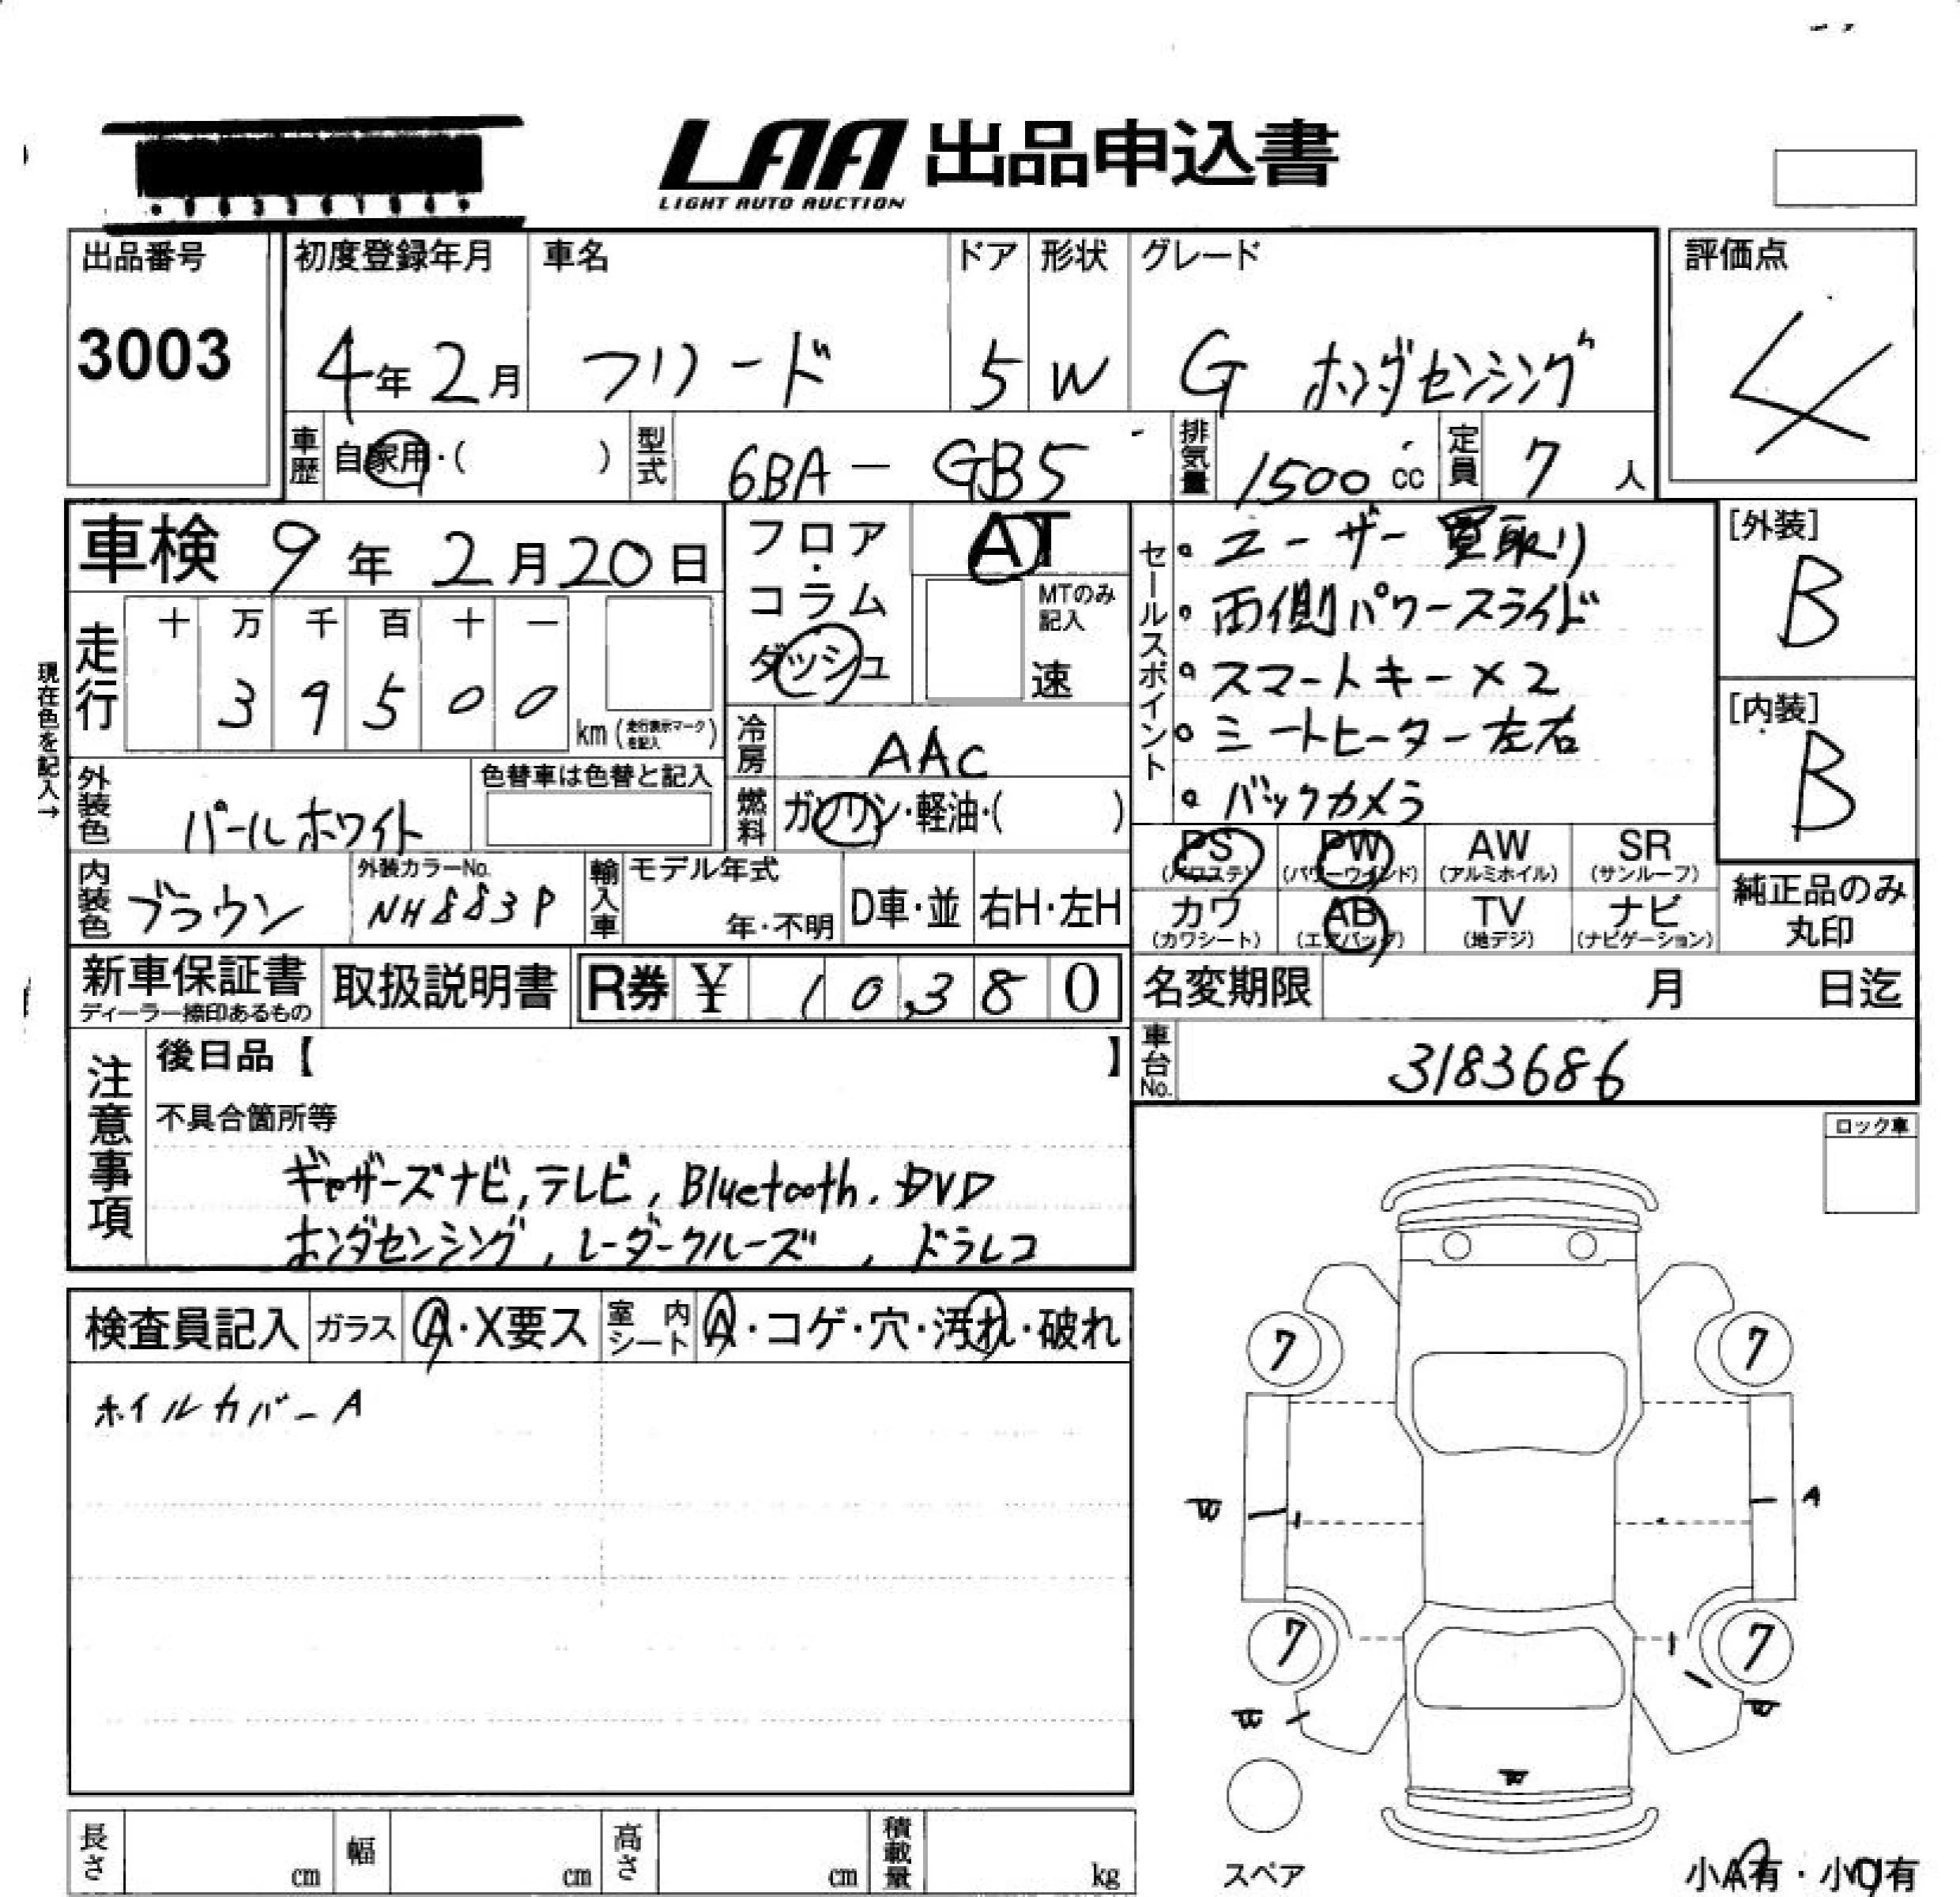 LAA 出品申込書
LIGHT AUTO AUCTION
出品番号
3003
初度登録年月
4年2月
車名
フリード
ドア
5
形状
W
グレード
G ホンダセンシング
評価点
4
車歴 自家用・( )
型式 6BA - GB5
排気量 1500 cc
定員 7 人
車検 9年 2月20日
フロア・コラム・ダッシュ
AT
MTのみ記入
速
セールスポイント
・ユーザー買取り
・両側パワースライド
・スマートキー×2
・シートヒーター左右
・バックカメラ
[外装]
B
[内装]
B
現在色を記入→
走行
十 万 千 百 十 一
3 9 5 0 0
km (走行表示マークを記入)
冷房 AAC
燃料 ガソリン・軽油・( )
外装色 パールホワイト
色替車は色替と記入
内装色 ブラウン
外装カラーNo.
NH883P
輸入車
モデル年式
年・不明
D車・並
右H・左H
PS (パワステ)
PW (パワーウインド)
AW (アルミホイル)
SR (サンルーフ)
カワ (カワシート)
AB (エアバッグ)
TV (地デジ)
ナビ (ナビゲーション)
純正品のみ丸印
新車保証書
ディーラー捺印あるもの
取扱説明書
R券 ¥ 10,380
名変期限 月 日迄
車台No. 3183686
注意事項
後日品【 】
不具合箇所等
ギャザーズナビ, テレビ, Bluetooth, DVD
ホンダセンシング, レーダークルーズ, ドラレコ
ロック車
検査員記入
ガラス A・X要ス
室内シート A・コゲ・穴・汚れ・破れ
ホイルカバーA
7
7
W
A
7
7
W
W
W
スペア
小A有・小U有
長さ cm
幅 cm
高さ cm
積載量 kg